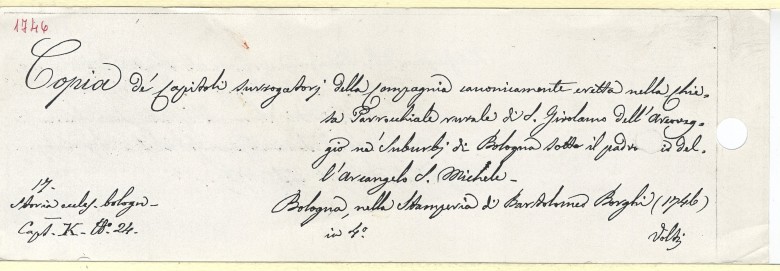 1746
Copia de' Capitoli surrogatorj della Compagnia canonicamente eretta nella Chie-
sa Parrochiale rurale di S. Girolamo dell'Arcoveg-
gio ne' Suburbj di Bologna sotto il padro io del-
l'Arcangelo S. Michele -
17.
Storia eccles. bologn. Bologna, nella Stamperia di Bartolomeo Borghi (1746)
Capt. K. N.° 24. in 4.° Volti